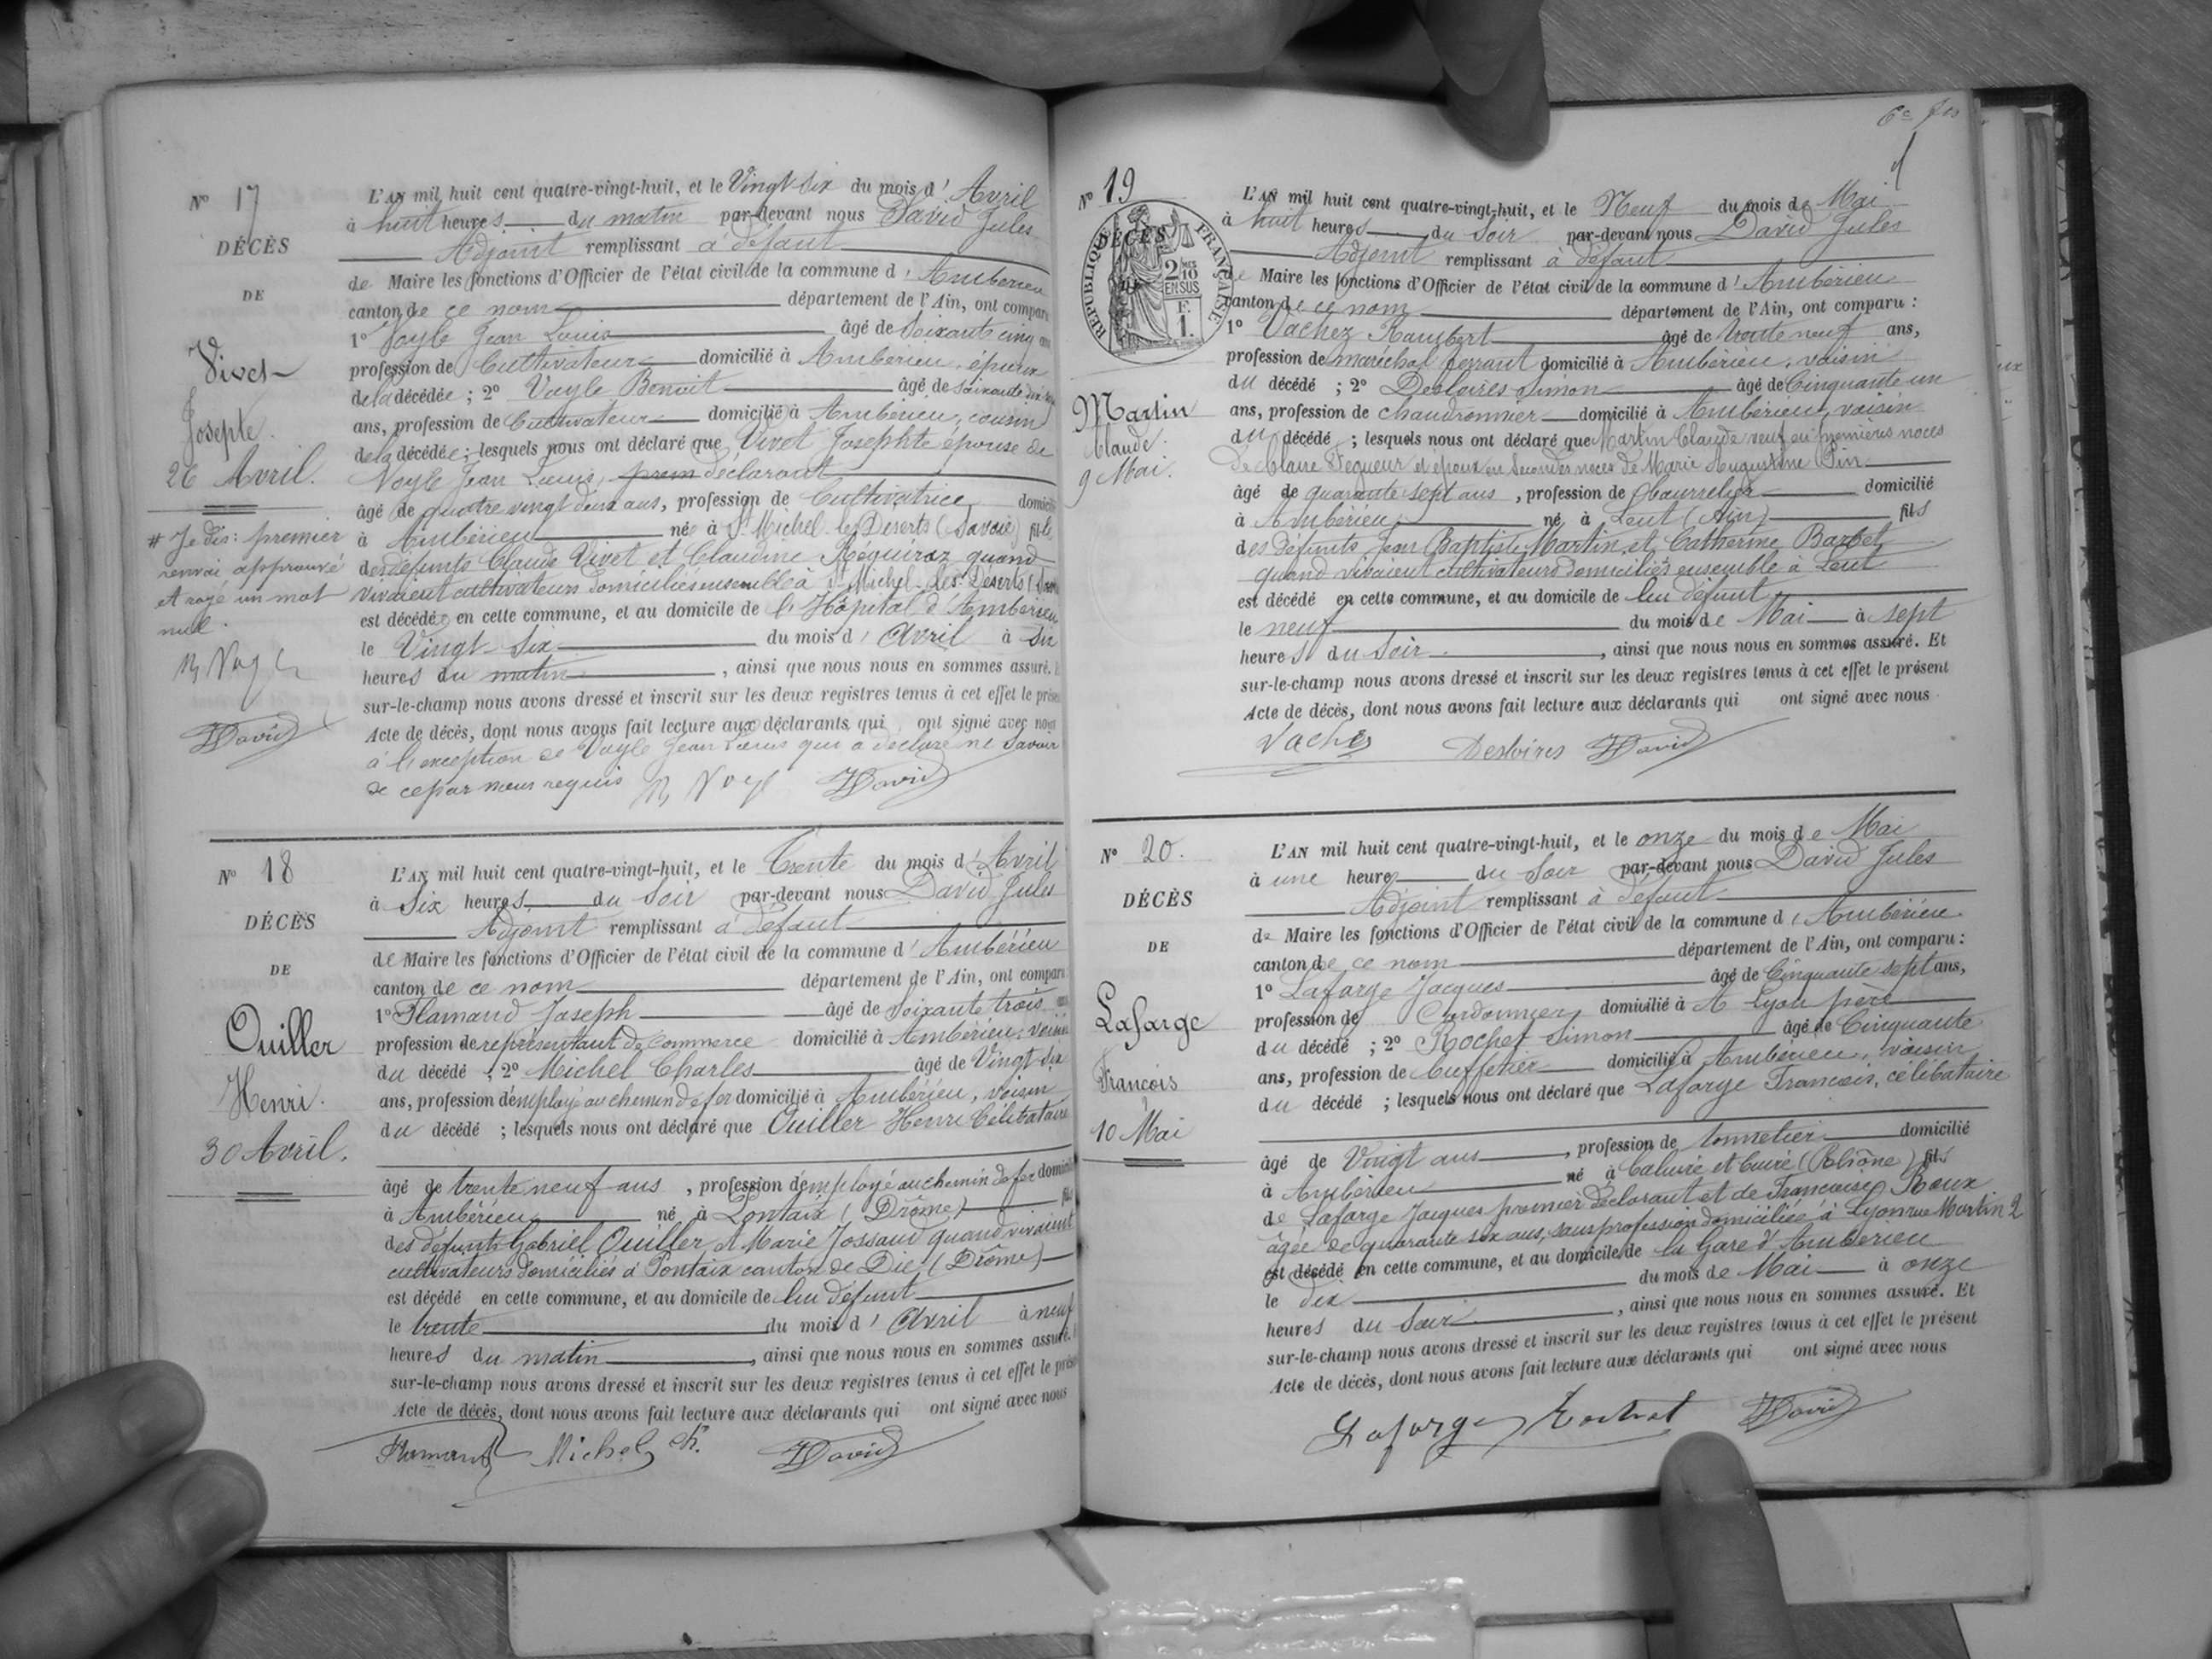 N° 17
DÉCÈS
DE
Vivet
Josephte.
26 Avril.
# Je dis: premier
renvoi approuvé
et rayé un mot
nul.
David
L'AN mil huit cent quatre-vingt-huit, et le Vingt-six du mois d'Avril
à huit heures du matin par-devant nous David Jules
Adjoint remplissant à défaut
de Maire les fonctions d'Officier de l'état civil de la commune d'Ambérieu
canton de ce nom département de l'Ain, ont comparu
1° Voyle Jean Louis âgé de Soixante cinq ans
profession de Cultivateur domicilié à Ambérieu, époux
de la décédée ; 2° Voyle Benoit âgé de soixante
ans, profession de Cultivateur domicilié à Ambérieu, cousin
de la décédée ; lesquels nous ont déclaré que Vivet Josephte épouse de
Voyle Jean Louis, prem déclarant
âgé de quatre vingt deux ans, profession de Cultivatrice domicilié
à Ambérieu née à St Michel les Déserts (Savoie) fille
des défunts Claude Vivet et Claudine quand
vivaient cultivateurs domiciliés ensemble à St Michel-des-Déserts
est décédée en cette commune, et au domicile de l'Hôpital d'Ambérieu
le Vingt-Six du mois d'Avril à Six
heures du matin, ainsi que nous nous en sommes assuré.
sur-le-champ nous avons dressé et inscrit sur les deux registres tenus à cet effet le présent
Acte de décès, dont nous avons fait lecture aux déclarants qui ont signé avec nous
à l'exception de Voyle Jean Louis qui a déclaré ne savoir
de ce par nous requis David
N° 18
DÉCÈS
DE
Ouiller
Henri.
30 Avril.
L'AN mil huit cent quatre-vingt-huit, et le Trente du mois d'Avril
à Six heures du Soir par-devant nous David Jules
Adjoint remplissant à défaut
de Maire les fonctions d'Officier de l'état civil de la commune d'Ambérieu
canton de ce nom département de l'Ain, ont comparu
1° Flamand Joseph âgé de Soixante trois ans
profession de représentant de Commerce domicilié à Ambérieu, voisin
du décédé ; 2° Michel Charles âgé de Vingt six
ans, profession d'employé au chemin de fer domicilié à Ambérieu, voisin
du décédé ; lesquels nous ont déclaré que Ouiller Henri Célibataire
âgé de trente neuf ans, profession d'employé au chemin de fer domicilié
à Ambérieu né à Pontaix (Drôme) fils
des défunts Gabriel Ouiller et Marie Jossaud quand vivaient
cultivateurs domiciliés à Pontaix canton de Die (Drôme)
est décédé en cette commune, et au domicile de lui défunt
le trente du mois d'Avril à neuf
heures du matin, ainsi que nous nous en sommes assuré.
sur-le-champ nous avons dressé et inscrit sur les deux registres tenus à cet effet le présent
Acte de décès, dont nous avons fait lecture aux déclarants qui ont signé avec nous
Flamand Michel Ch. David
6e
N° 19
DÉCÈS
RÉPUBLIQUE FRANÇAISE
2/10
EN SUS
F.
1.
Martin
Claude.
9 Mai.
L'AN mil huit cent quatre-vingt-huit, et le Neuf du mois de Mai
à huit heures du Soir par-devant nous David Jules
Adjoint remplissant à défaut
de Maire les fonctions d'Officier de l'état civil de la commune d'Ambérieu
canton de ce nom département de l'Ain, ont comparu :
1° Vachez Rambert âgé de trente neuf ans,
profession de maréchal ferrant domicilié à Ambérieu, voisin
du décédé ; 2° Desloires Simon âgé de Cinquante un
ans, profession de chaudronnier domicilié à Ambérieu, voisin
du décédé ; lesquels nous ont déclaré que Martin Claude veuf en premières noces
de Claire Fequeur et époux en Secondes noces de Marie Augustine Pin
âgé de quarante sept ans, profession de Bourrelier domicilié
à Ambérieu né à Lent (Ain) fils
des défunts Jean Baptiste Martin et Catherine Barbet
quand vivaient cultivateurs domiciliés ensemble à Lent
est décédé en cette commune, et au domicile de lui défunt
le neuf du mois de Mai à sept
heures du Soir, ainsi que nous nous en sommes assuré. Et
sur-le-champ nous avons dressé et inscrit sur les deux registres tenus à cet effet le présent
Acte de décès, dont nous avons fait lecture aux déclarants qui ont signé avec nous
Vachez Desloires David
N° 20.
DÉCÈS
DE
Lafarge
François
10 Mai
L'AN mil huit cent quatre-vingt-huit, et le onze du mois de Mai
à une heure du Soir par-devant nous David Jules
Adjoint remplissant à défaut
de Maire les fonctions d'Officier de l'état civil de la commune d'Ambérieu
canton de ce nom département de l'Ain, ont comparu :
1° Lafarge Jacques âgé de Cinquante sept ans,
profession de Cordonnier domicilié à A Lyon père
du décédé ; 2° Rochet Simon âgé de Cinquante
ans, profession de Buffetier domicilié à Ambérieu, voisin
du décédé ; lesquels nous ont déclaré que Lafarge François, célibataire
âgé de Vingt ans, profession de tonnelier domicilié
à Ambérieu né à Caluire et Cuire (Rhône) fils
de Lafarge Jacques premier déclarant et de Françoise Roux
âgée de quarante six ans, sans profession domiciliée à Lyon rue Martin 2
est décédé en cette commune, et au domicile de la Gare d'Ambérieu
le dix du mois de Mai à onze
heures du Soir, ainsi que nous nous en sommes assuré. Et
sur-le-champ nous avons dressé et inscrit sur les deux registres tenus à cet effet le présent
Acte de décès, dont nous avons fait lecture aux déclarants qui ont signé avec nous
Lafarge Rochet David